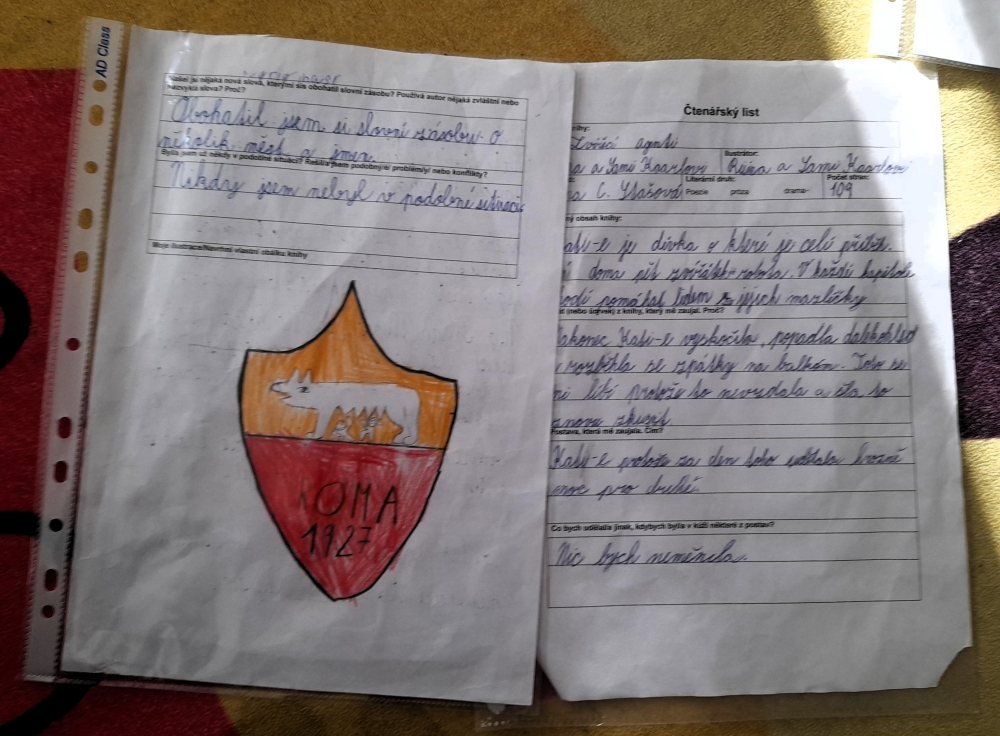 AD Class
Našel jsi nějaká nová slova, kterými sis obohatil slovní zásobu? Používá autor nějaká zvláštní nebo
nezvyklá slova? Proč?
Obohatil jsem si slovní zásobu o
několik měst a jmen.
Byl/a jsem už někdy v podobné situaci? Řešil/a jsem podobný/é problém/y/ nebo konflikty?
Nikdy jsem nebyl v podobné situaci
Moje ilustrace/Navrhni vlastní obálku knihy
ROMA
1927
Čtenářský list
knihy:
Zvířecí agenti
Ilustrátor:
a Sami Kaarlovi Reina a Sami Kaarlovi
Literární druh:
Počet stran:
C.
Poezie próza drama
109
obsah knihy:
je dívka v které je celý příběh.
doma pět zvířátek-robota. V každé kapitole
pomáhat lidem s jejich mazlíčky
(nebo úryvek) z knihy, který mě zaujal. Proč?
Nakonec Kasi-e vyskočila, popadla dalekohled
rozběhla se zpátky na balkón. Toto se
mi líbí protože ho nevzdala a šla to
znovu zkusit
Postava, která mě zaujala. Čím?
Kasi-e protože za den toho udělala hrozně
moc pro druhé.
Co bych udělal/a jinak, kdybych byl/a v kůži některé z postav?
Nic bych neměnila.